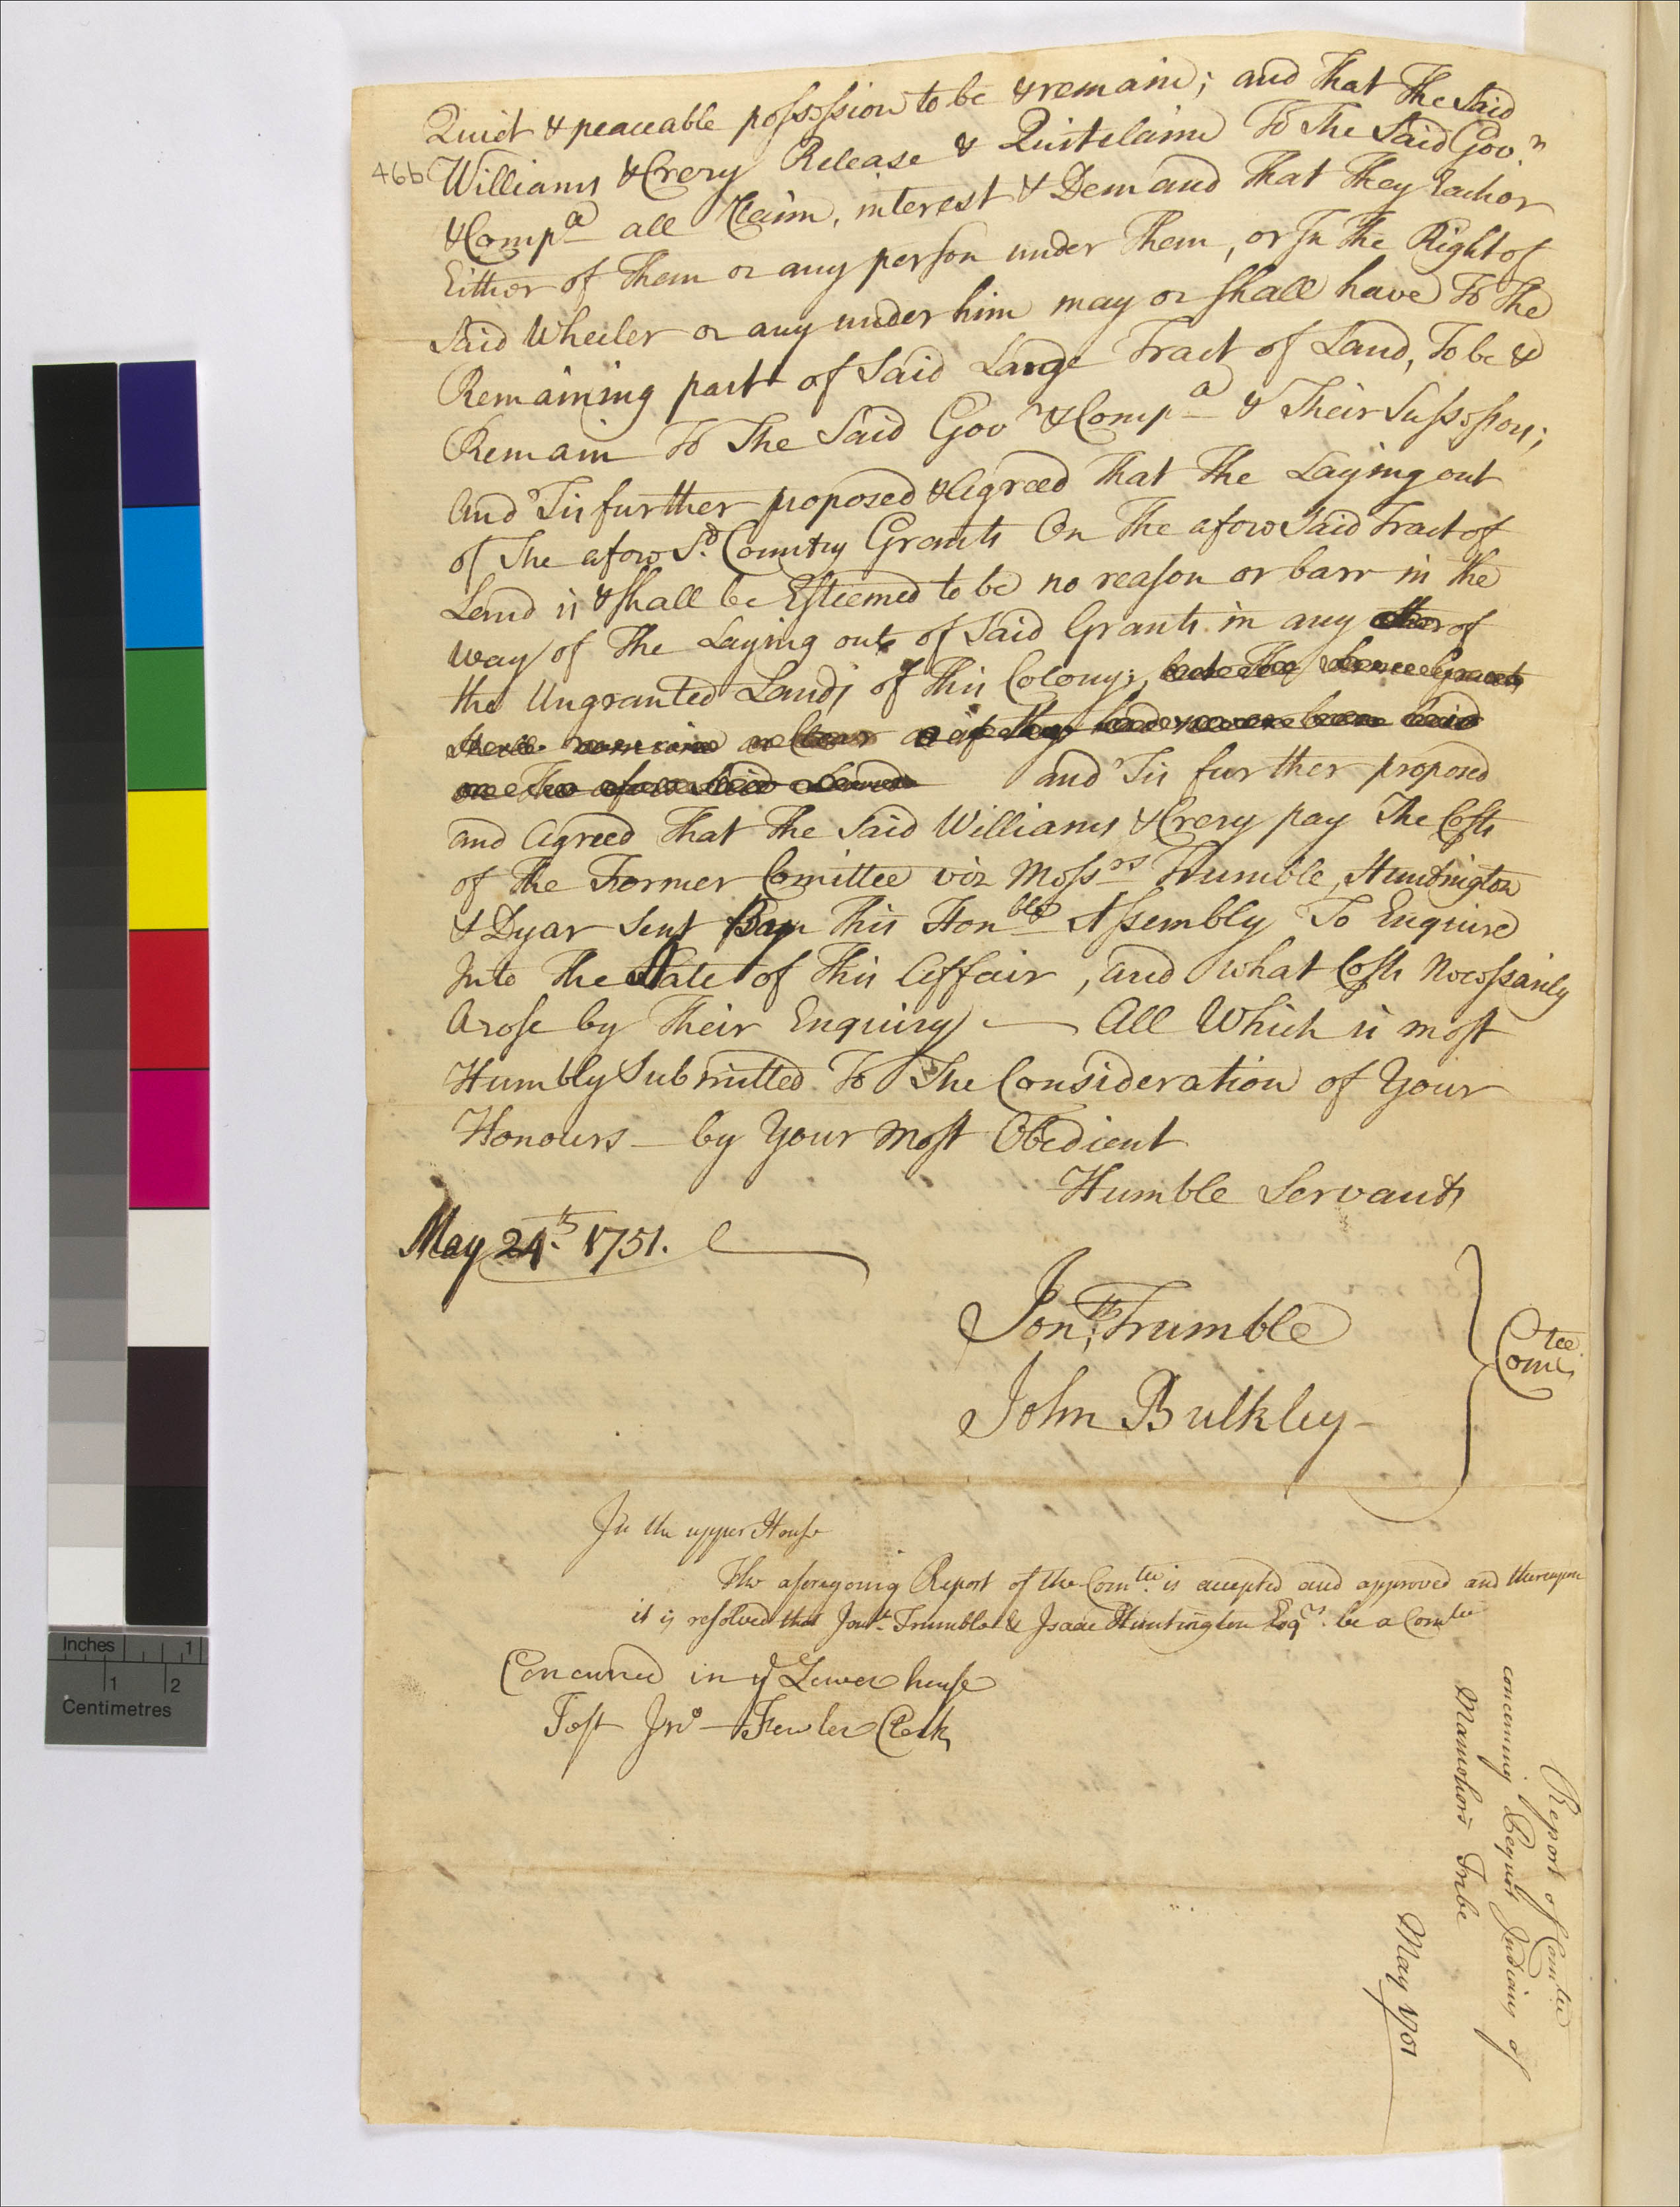 Quiet & peaceable possession to be & remain; and That The Said
46b
Williams & Crery Release & Quitclaim To The Said Gov.n
& Compa all Claim, interest & Demand That They Each or
Either of Them or any person under Them, or In The Right of
Said Wheeler or any under him may or shall have To The
Remaining part of Said Large Tract of Land, To be &
Remain To The Said Gov & Compa & Their Sussessors;
And 'Tis further proposed & Agreed That The Laying out
of The afore Sd. Country Grants On The afore Said Tract of
Land is & shall be Esteemed to be no reason or barr in the
way of The Laying out of Said Grants in any other of
the Ungranted Lands of This Colony;
and 'Tis further proposed
and Agreed That The Said Williams & Crery pay The Costs
of The Former Comittee viz Messrs Trumble, Huntington
& Dyar Sent By This Honble Assembly To Enquire
Into The State of This Affair, and what Costs Necessarily
Arose by Their Enquiry — All Which is most
Humbly Submitted To The Consideration of Your
Honours — by Your Most Obedient
Humble Servants
May 24th. 1751.
Jonth; Trumble
John Bulkley
Comtee
In the upper House
The aforegoing Report of the Comtee is accepted and approved and thereupon
it is resolved that Jonth Trumble & Isaac Huntington Esqrs. be a Comtee
Concurred in ye Lower house
Test Jno Fowler Clerk
Report of Comtee
concerning Pequot Indians of
Mamohors Tribe
May 1751
Inches 1
1 2
Centimetres